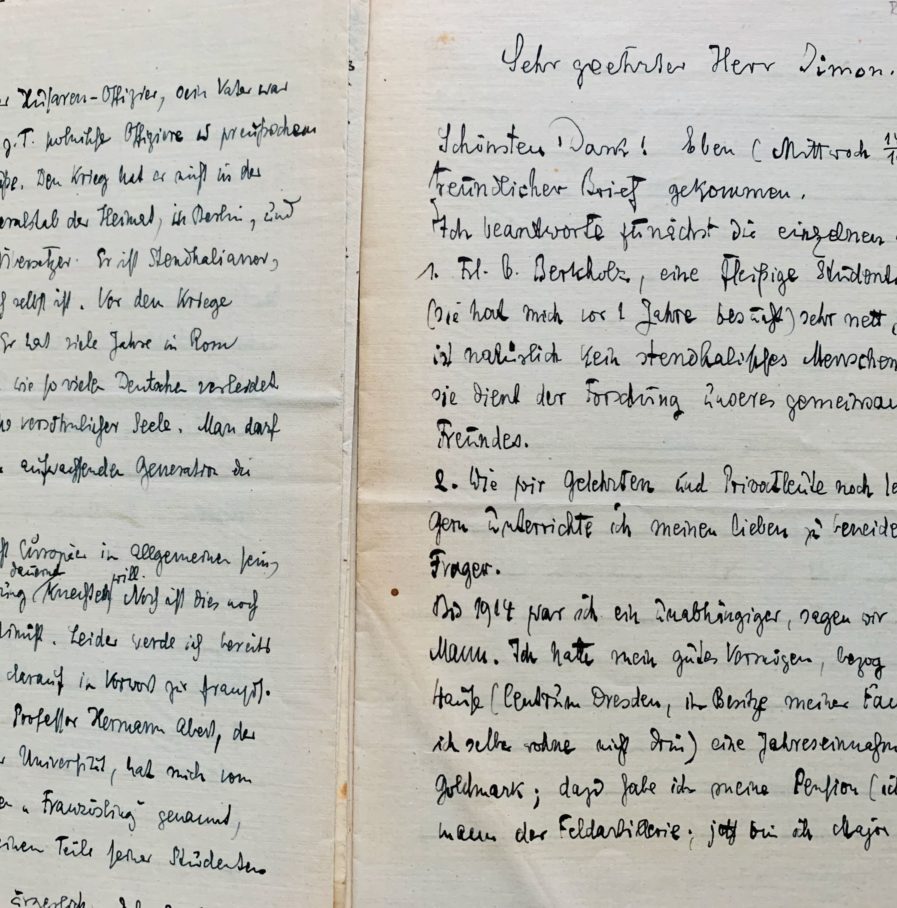 Husaren-Offizier, sein Vater war
z. T. polnische Offiziere in preußischem
Den Krieg hat er nicht in der
der Heimat, in Berlin, und
Er ist Stendhalianer,
selbst ist. Vor dem Kriege
Er hat viele Jahre in Rom
wie so vielen Deutschen verleidet
versöhnlicher Seele. Man darf
aufwachsenden Generation die
Europäer im allgemeinen sein,
dauernd will.
knechten Noch ist dies noch
Leider werde ich bereits
darauf im Vorwort zur französ.
Professor Hermann Abert, der
Universität, hat mich vom
„Französling“ genannt,
einen Teile seiner Studenten
ärgerlich.
Sehr geehrter Herr Simon.
Schönsten Dank! Eben (Mittwoch
freundlicher Brief gekommen.
Ich beantworte zunächst die einzelnen
1. Frl. B. Berkholz, eine fleißige Student
(sie hat mich vor 1 Jahre besucht) sehr nett,
ist natürlich kein stendhalisches Menschen
sie dient der Forschung unseres gemeinsa
Freundes.
2. Wie wir Gelehrten und Privatleute noch le
Gern unterrichte ich meinen lieben zu beneide
Frager.
Bis 1914 war ich ein unabhängiger, sagen wir
Mann. Ich hatte mein gutes Vermögen, bezog
Hause (Centrum Dresden, im Besitze meiner Fa
ich selber wohne nicht drin) eine Jahreseinnahm
Goldmark; dazu habe ich meine Pension (ic
mann der Feldartillerie; jetzt bin ich Major